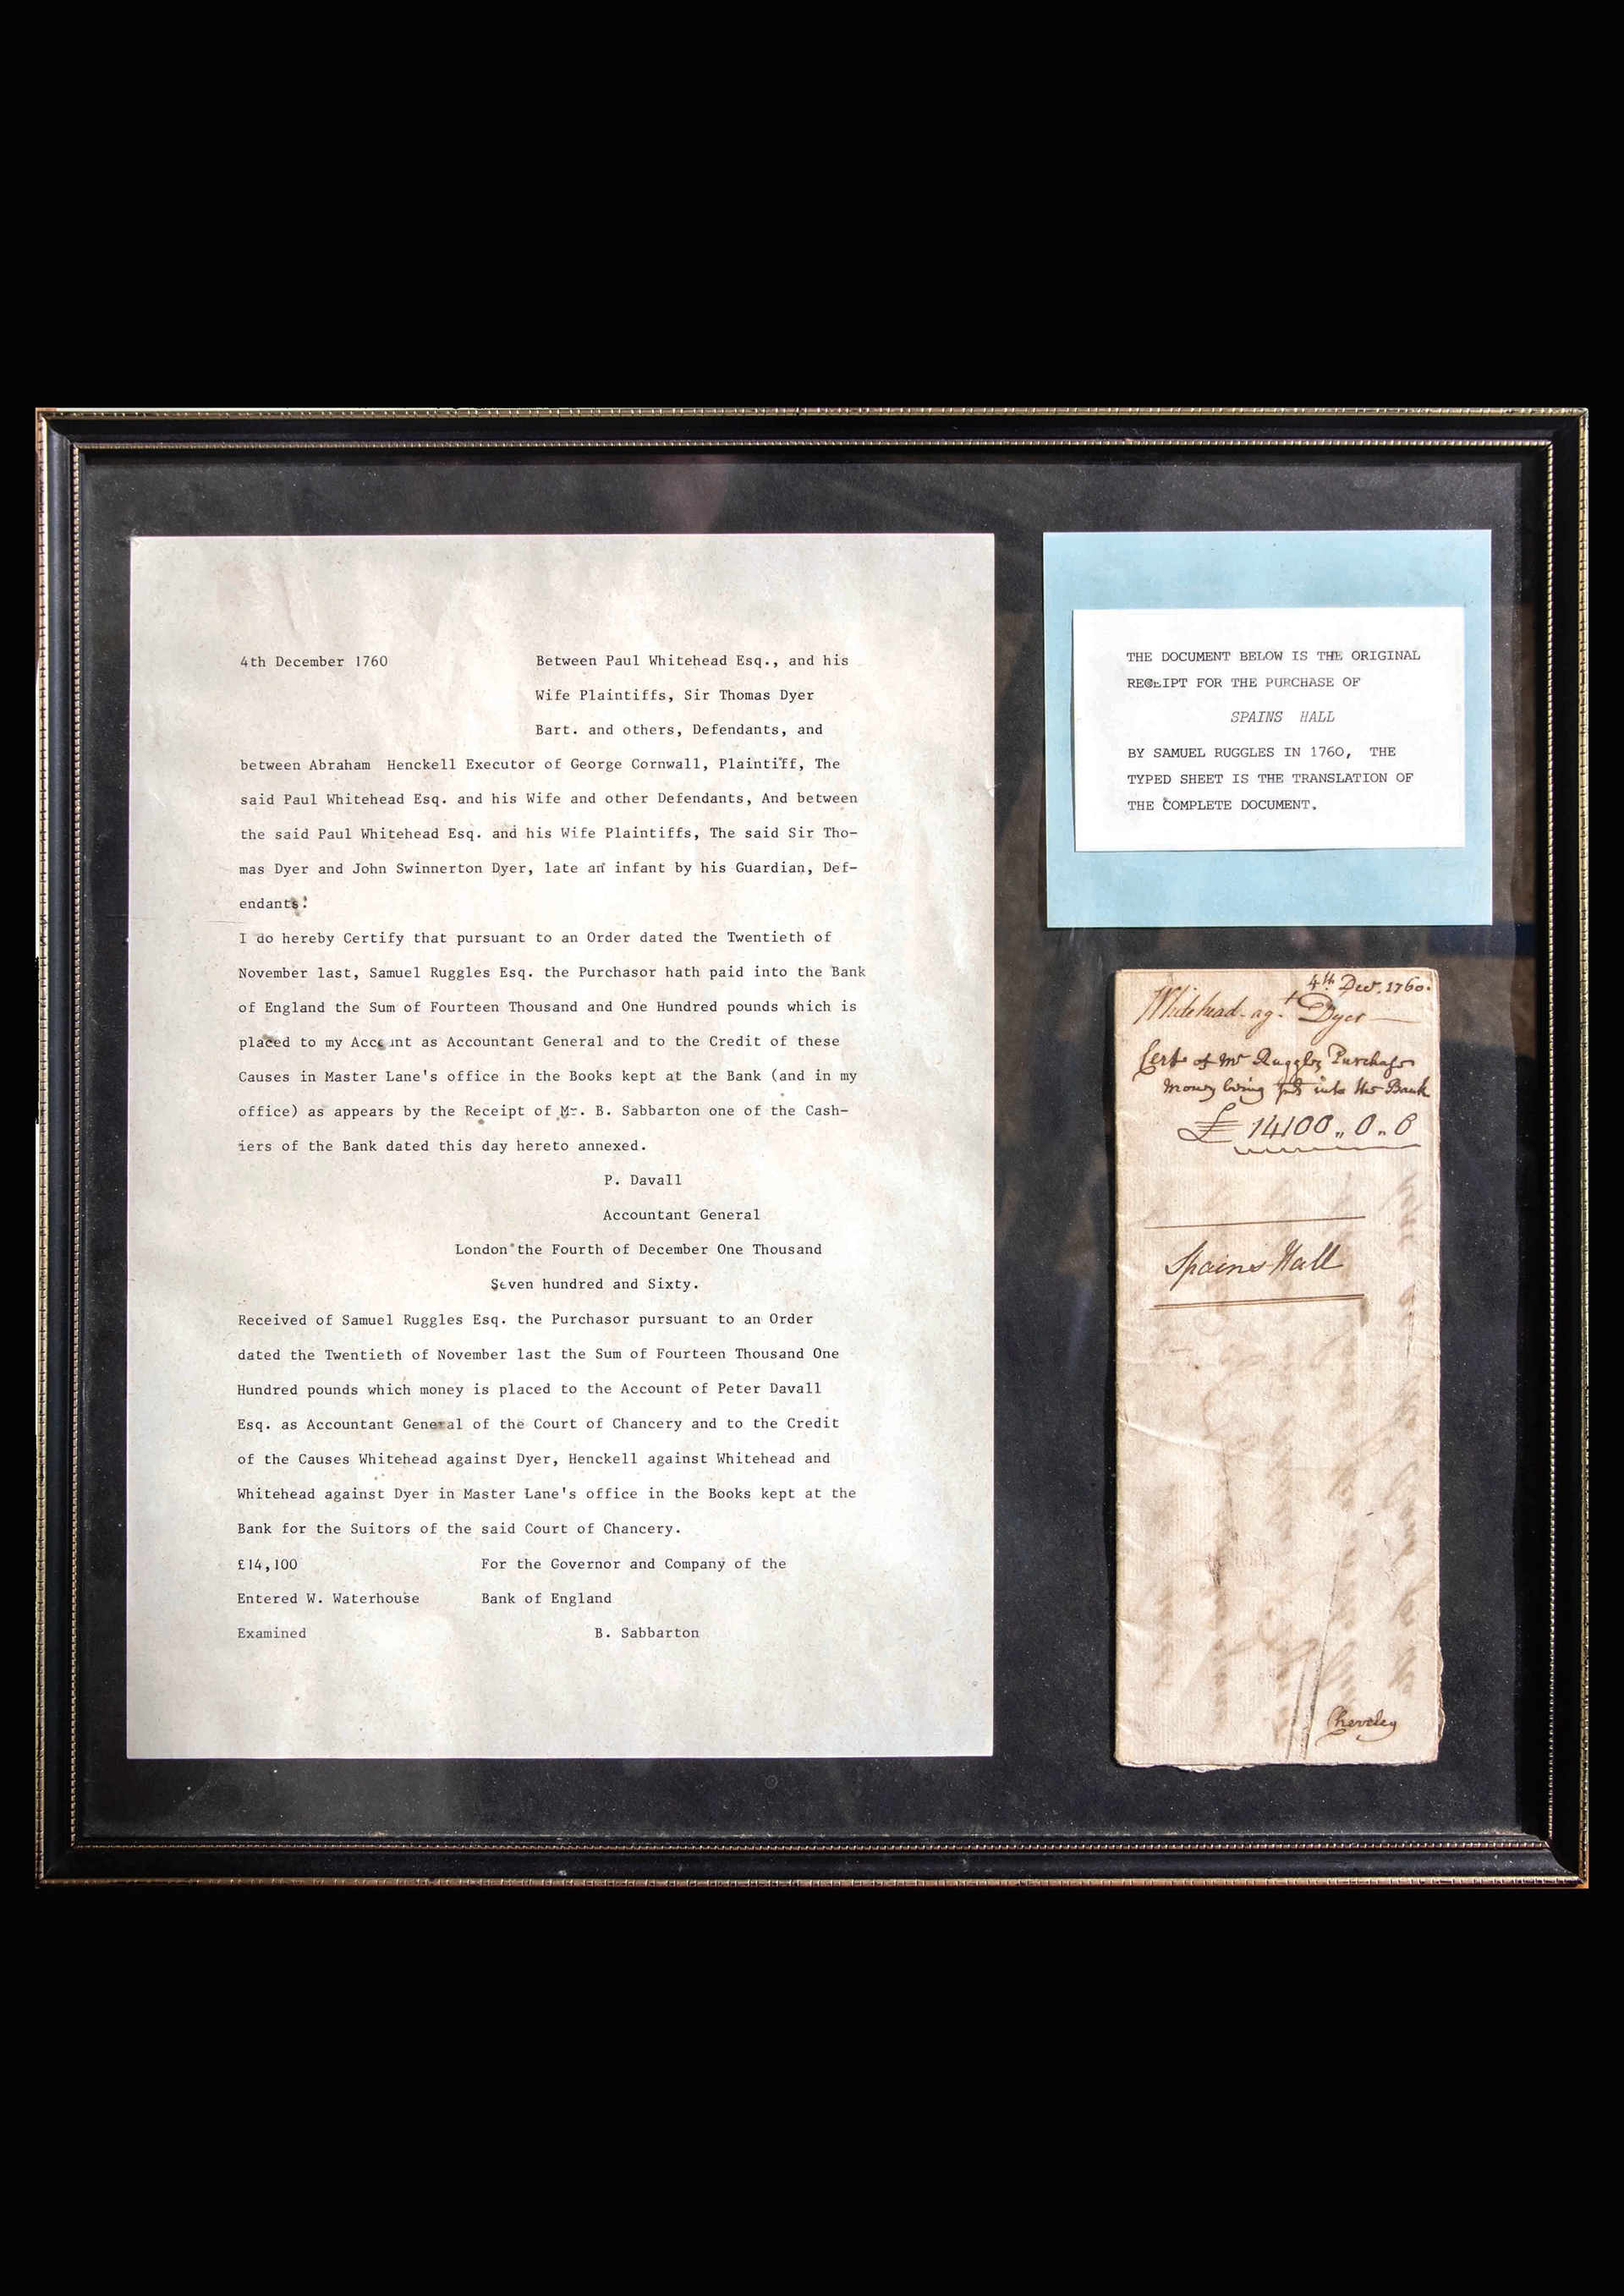 4th December 1760 Between Paul Whitehead Esq., and his
Wife Plaintiffs, Sir Thomas Dyer
Bart. and others, Defendants, and
between Abraham Henckell Executor of George Cornwall, Plaintiff, The
said Paul Whitehead Esq. and his Wife and other Defendants, And between
the said Paul Whitehead Esq. and his Wife Plaintiffs, The said Sir Tho-
mas Dyer and John Swinnerton Dyer, late an infant by his Guardian, Def-
endants.
I do hereby Certify that pursuant to an Order dated the Twentieth of
November last, Samuel Ruggles Esq. the Purchasor hath paid into the Bank
of England the Sum of Fourteen Thousand and One Hundred pounds which is
placed to my Account as Accountant General and to the Credit of these
Causes in Master Lane's office in the Books kept at the Bank (and in my
office) as appears by the Receipt of Mr. B. Sabbarton one of the Cash-
iers of the Bank dated this day hereto annexed.
P. Davall
Accountant General
London the Fourth of December One Thousand
Seven hundred and Sixty.
Received of Samuel Ruggles Esq. the Purchasor pursuant to an Order
dated the Twentieth of November last the Sum of Fourteen Thousand One
Hundred pounds which money is placed to the Account of Peter Davall
Esq. as Accountant General of the Court of Chancery and to the Credit
of the Causes Whitehead against Dyer, Henckell against Whitehead and
Whitehead against Dyer in Master Lane's office in the Books kept at the
Bank for the Suitors of the said Court of Chancery.
£14,100 For the Governor and Company of the
Entered W. Waterhouse Bank of England
Examined B. Sabbarton
THE DOCUMENT BELOW IS THE ORIGINAL
RECEIPT FOR THE PURCHASE OF
SPAINS HALL
BY SAMUEL RUGGLES IN 1760, THE
TYPED SHEET IS THE TRANSLATION OF
THE COMPLETE DOCUMENT.
4th Decr. 1760.
Whitehead agt Dyer
Certe of Mr Ruggles Purchase
Money being pd into the Bank
£ 14100,, 0,, 0
Spains Hall
Cheveley